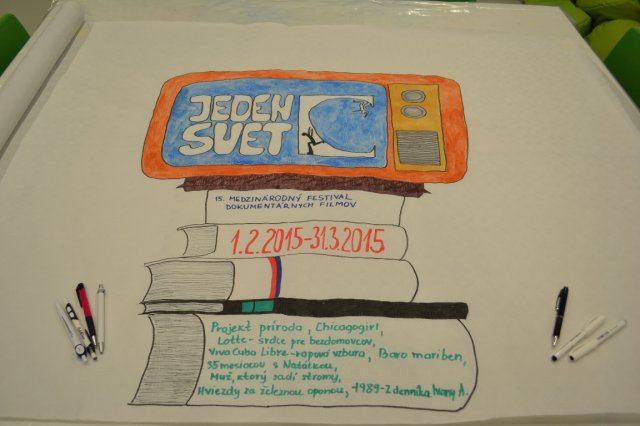 JEDEN
SVET
15. MEDZINÁRODNÝ FESTIVAL
DOKUMENTÁRNYCH FILMOV
1.2.2015-31.3.2015
Projekt príroda, Chicagogirl,
Lotte - srdce pre bezdomovcov,
Viva Cuba Libre - rapová vzbura, Baro mariben,
35 mesiacov s Natálkou,
Muž, ktorý sadí stromy,
Hviezdy za železnou oponou, 1989-Z denníka Ivany A.